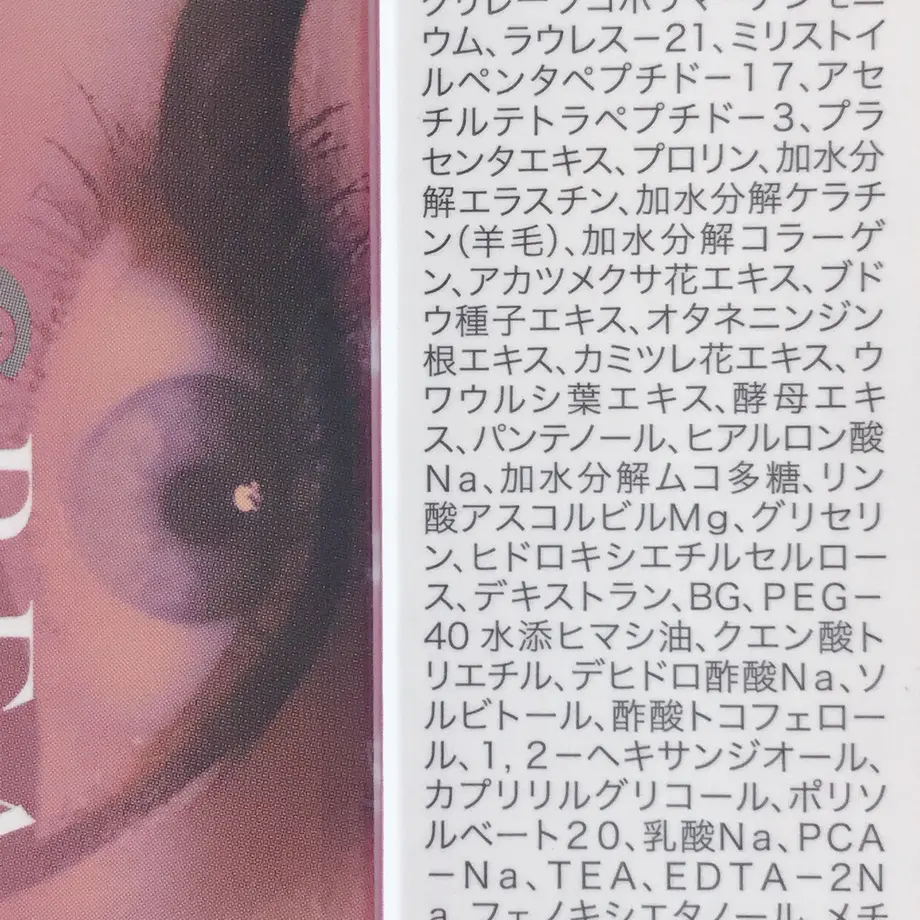 ウム、ラウレスー21、ミリストイ
ルペンタペプチドー17、アセ
チルテトラペプチドー3、プラ
センタエキス、プロリン、加水分
解エラスチン、加水分解ケラチ
ン(羊毛)、加水分解コラーゲ
ン、アカツメクサ花エキス、ブド
ウ種子エキス、オタネニンジン
根エキス、カミツレ花エキス、ウ
ワウルシ葉エキス、酵母エキ
ス、パンテノール、ヒアルロン酸
Na、加水分解ムコ多糖、リン
酸アスコルビルMg、グリセリ
ン、ヒドロキシエチルセルロー
ス、デキストラン、BG、PEGー
40 水添ヒマシ油、クエン酸ト
リエチル、デヒドロ酢酸Na、ソ
ルビトール、酢酸トコフェロー
ル、1,2ーヘキサンジオール、
カプリリルグリコール、ポリソ
ルベート20、乳酸Na、PCA
ーNa、TEA、EDTAー2N
a、フェノキシエタノール、メチ